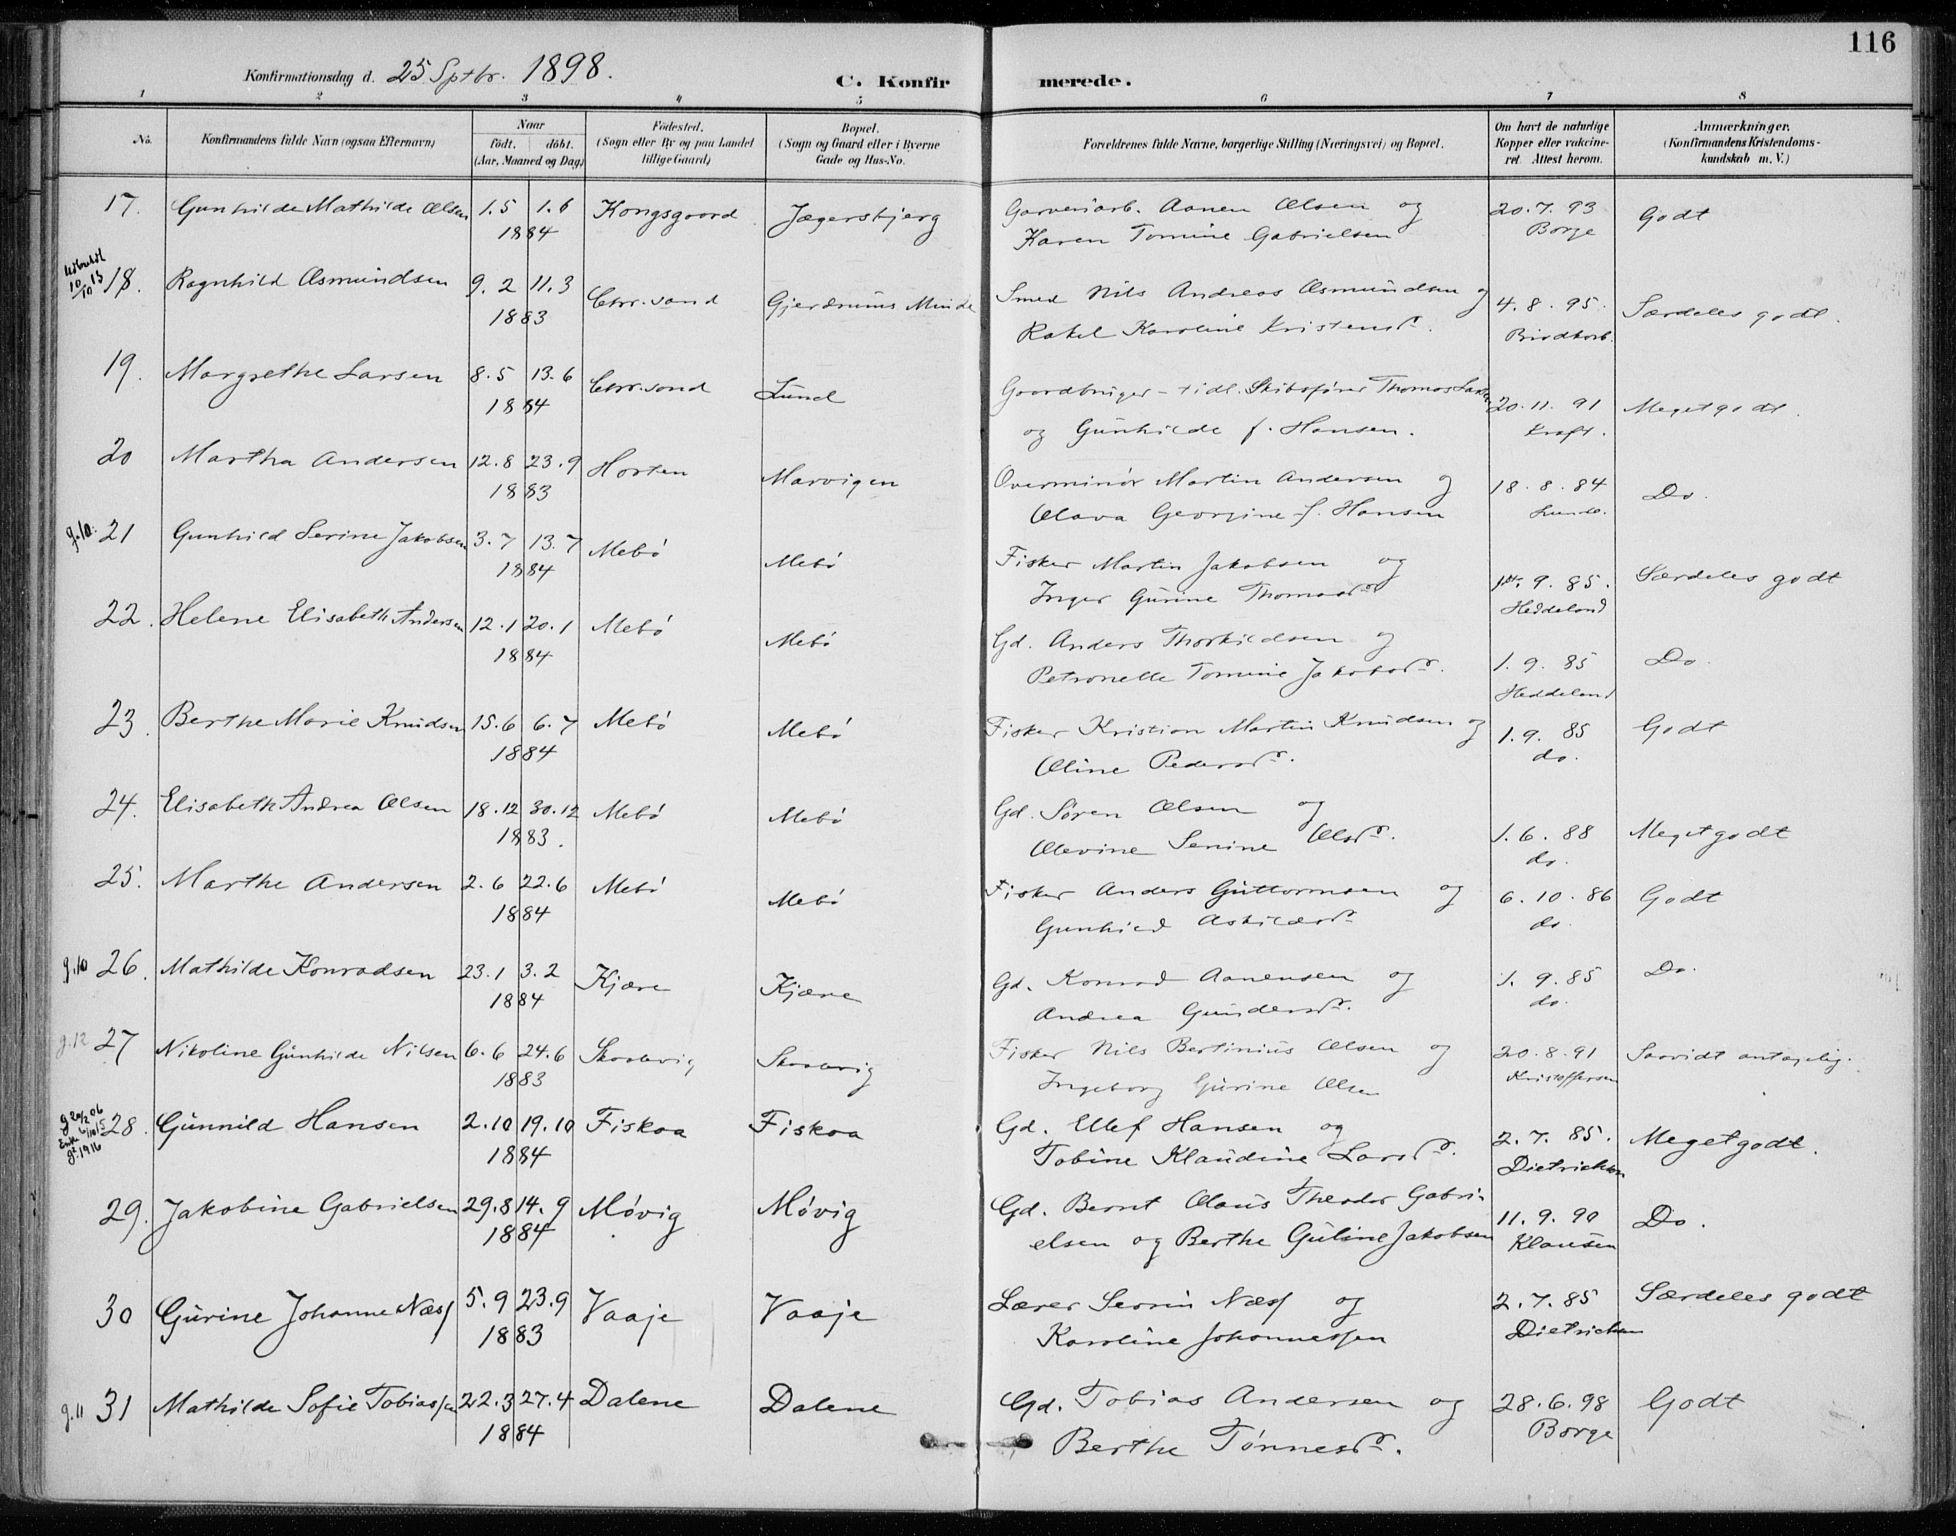 116
Konfirmationsdag d. 25 Sptbr. 1898.
C. Konfirmerede.
1 2 3 4 5 6 7 8
No.
Konfirmandens fulde Navn (ogsaa Efternavn)
Naar
födt. döbt.
(Aar, Maaned og Dag)
Födested.
(Sogn eller By og paa Landet
tillige Gaard)
Bopæl.
(Sogn og Gaard eller i Byerne
Gade og Hus-No.
Forældrenes fulde Navne, borgerlige Stilling (Næringsvei) og Bopæl.
Om havt de naturlige
Kopper eller vakcine-
ret. Attest herom.
Anmærkninger.
(Konfirmandens Kristendoms-
kundskab m. V.)
17. Gunhilde Mathilde Olsen 1.5 1.6 Kongsgaard Jægersbjerg Garveriarb. Aanen Olsen og 20.7.93 Godt
1884 Karen Tomine Gabrielsen Borge
10/10 13 18. Ragnhild Osmundsen 9.2 11.3 Chr.sand Gjerdrums Minde Smed Nils Andreas Osmundsen og 4.8.95. Særdeles godt.
1883 Rakel Karoline Kristensd.
19. Margrethe Larsen 8.5 13.6 Chr.sand Lund Gaardbruger - tidl. Skibsfører Thomas Larsen 20.11.91 Meget godt.
1884 og Gunhilde f. Hansen. Kraft.
20 Martha Andersen 12.8 23.9 Horten Marvigen Overminør Martin Andersen og 18.8.84 Do.
1883 Olava Georgine f. Hansen
g.10: 21 Gunhild Serine Jakobsen 3.7 13.7 Mebø Mebø Fisker Martin Jakobsen og 9.85. Særdeles godt
1884 Inger Gurine Thomasd. Heddeland
22. Helene Elisabeth Andersen 12.1 20.1 Mebø Mebø Gd. Anders Thorkildsen og 1.9.85 Do.
1884 Petronelle Tomine Jakobsd. Heddeland
23. Berthe Marie Knudsen 15.6 6.7 Mebø Mebø Fisker Kristian Martin Knudsen og 1.9.85 Godt
1884 Oline Pedersd. do.
24. Elisabeth Andrea Olsen 18.12 30.12 Mebø Mebø Gd. Søren Olsen og 1.6.88 Meget godt
1883. Olevine Serine Olsd. do.
25. Marthe Andersen 2.6 22.6 Mebø Mebø Fisker Anders Guttormsen og 6.10.86 Godt
1884 Gunhild Askildsd. do.
g.10 26. Mathilde Konradsen 23.1 3.2 Kjære Kjære Gd. Konrad Aanensen og 1.9.85 Do.
1884 Andrea Gundersd. do.
g.12 27 Nikoline Gunhilde Nilsen 6.6 24.6 Skaalevig Skaalevig Fisker Nils Bertinius Olsen og 20.8.91 Saavidt antagelig.
1883 Ingeborg Gurine Olsen Kristoffersen
g 20/2 06 28. Gunnild Hansen 2.10 19.10 Fiskaa Fiskaa Gd. Ellef Hansen og 2.7.85. Meget godt.
g. 1916 1884 Tobine Klaudine Larsd. Dietrichson
29. Jakobine Gabrielsen 29.8 14.9 Møvig Møvig Gd. Bernt Olaus Theodor Gabri- 11.9.90 Do.
1884 elsen og Berthe Guline Jakobsen Klausen
30 Gurine Johanne Næss 5.9 23.9 Vaaje Vaaje Lærer Severin Næss og 2.7.85 Særdeles godt
1883 Karoline Johannessen Dietrichson
g.11 31 Mathilde Sofie Tobiassen 22.3 27.4 Dalene Dalene Gd. Tobias Andersen og 28.6.98 Godt
1884 Berthe Tønnesd. Borge